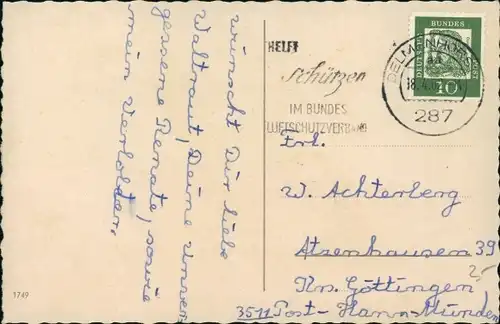 wünscht Dir liebe
Waltraut, Deine
gessene Renate, sowie
mein Verlobter.
HELFT
schützen
IM BUNDES
LUFTSCHUTZVERBAND
BUNDES
10
DELMENHORST
18.4.
287
Frl.
W. Achterberg
Atzenhausen 39
Krs. Göttingen
3511 Post-Hann-Münden
1749